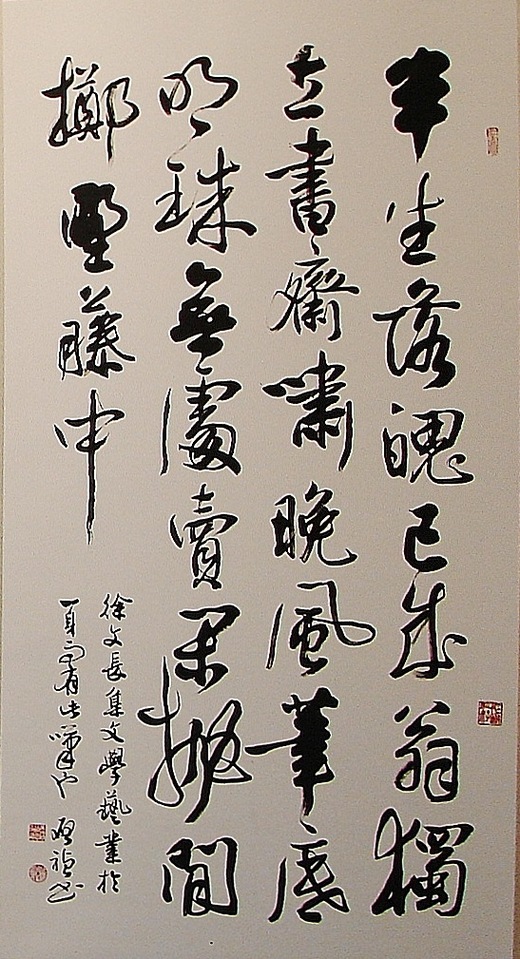 半生落魄已成翁獨
立書齋嘯晚風筆底
明珠無處賣閑拋閒
擲野藤中
徐文長集文學藝業於
一身有此嘯也